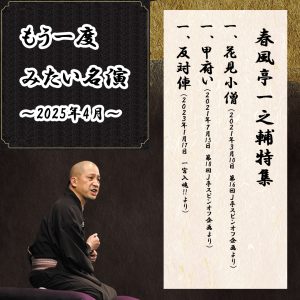 もう一度
みたい名演
~2025年4月~
春風亭一之輔特集
一、花見小僧(2021年3月10日 第16回J亭スピンオフ企画より)
一、甲府い(2021年7月15日 第18回J亭スピンオフ企画より)
一、反対俥(2023年1月17日 一宮入魂!!より)